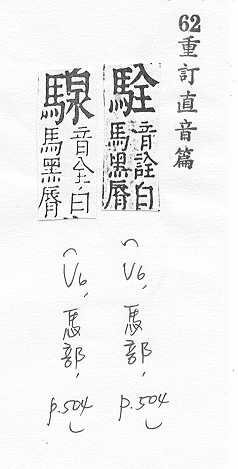 62重訂直音篇
駩
音詮白
馬黑脣
(V6,馬部,p.504)
騡
音全白
馬黑脣
(V6,馬部,p.504)